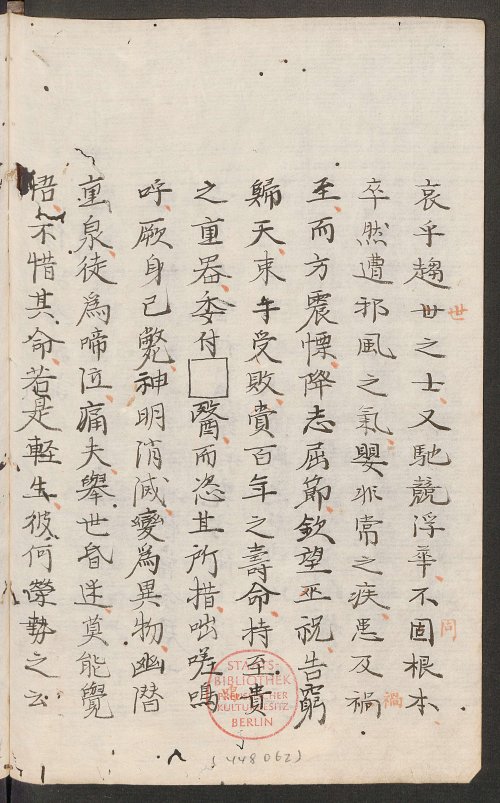 哀乎趨世之士又馳競浮華不固根本
世
固
卒然遭邪風之氣嬰非常之疾患及禍
禍
至而方震慄降志屈節欽望巫祝告窮
歸天束午受敗賷百年之壽命持至貴
之重器委付□醫而恣其所措咄嗟鳴
呼厥身已斃神明消滅變為異物幽潛
重泉徒為啼泣痛夫舉世昏迷莫能覺
悟不惜其命若是軽生彼何榮勢之云
STAATS-
BIBLIOTHEK
PREUSSISCHER
KULTURBESITZ
BERLIN
(448062)